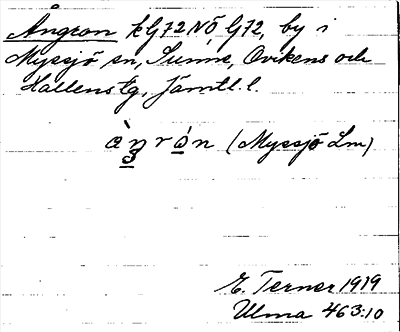 Ångron kG72NÖ G72, by i
Myssjö sn, Sunne, Ovikens och
Hallens tg, Jämtl. l.
(Myssjö Lm)
E. Terner 1919
Ulma 463:10